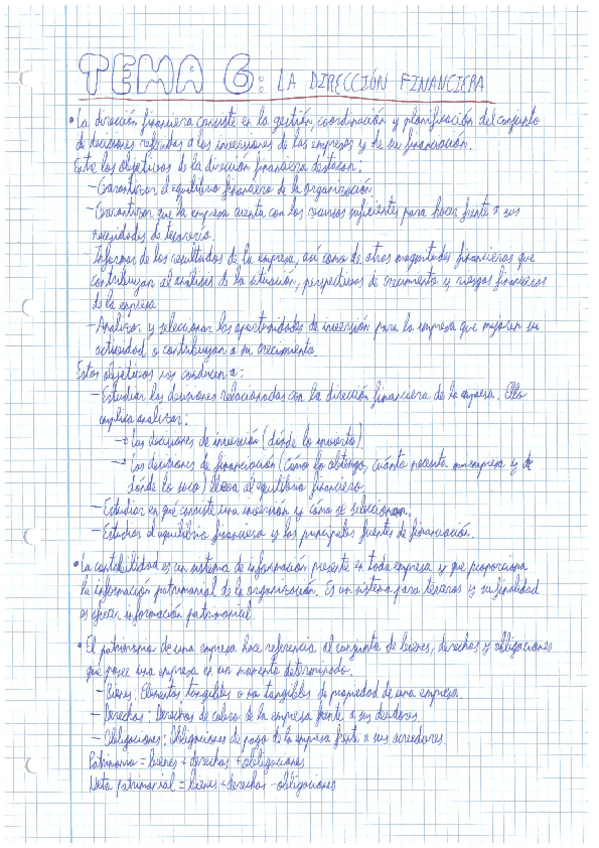 TEMA 6: LA DIRECCIÓN FINANCIERA
• La dirección financiera consiste en la gestión, coordinación y planificación del conjunto
de decisiones referidas a las inversiones de las empresas y de su financiación.
Entre los objetivos de la dirección financiera destacan:
- Garantizar el equilibrio financiero de la organización
- Garantizar que la empresa cuenta con los recursos suficientes para hacer frente a sus
necesidades de tesorería.
- Informar de los resultados de la empresa, así como de otras magnitudes financieras que
contribuyan al análisis de la situación, perspectivas de crecimiento y riesgos financieros
de la empresa
- Analizar y seleccionar las oportunidades de inversión para la empresa que mejoren su
actividad o contribuyan a su crecimiento.
Estos objetivos nos conducen a:
- Estudiar las decisiones relacionadas con la dirección financiera de la empresa. Ello
implica analizar:
→ Las decisiones de inversión (dónde lo invierto)
→ Las decisiones de financiación (Cómo lo obtengo, cuánta necesita mi empresa y de
dónde lo saco) lleva al equilibrio financiero.
- Estudiar en qué consiste una inversión y cómo se seleccionan.
- Estudiar el equilibrio financiero y las principales fuentes de financiación.
• La contabilidad es un sistema de información presente en toda empresa y que proporciona
la información patrimonial de la organización. Es un sistema para terceros y su finalidad
es ofrecer información patrimonial.
• El patrimonio de una empresa hace referencia al conjunto de bienes, derechos y obligaciones
que posee una empresa en un momento determinado.
- Bienes: Elementos tangibles o no tangibles de propiedad de una empresa.
- Derechos: Derechos de cobro de la empresa frente a sus deudores
- Obligaciones: Obligaciones de pago de la empresa frente a sus acreedores.
Patrimonio = bienes + derechos + obligaciones
Neto patrimonial = bienes + derechos - obligaciones